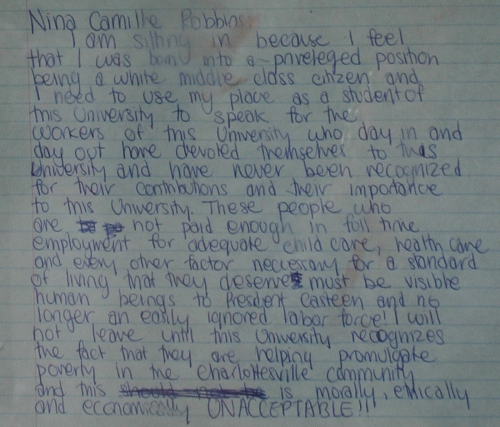 Nina Camille Robbins:
I am sitting in because I feel
that I was born into a priveleged position
being a white middle class citizen and
I need to use my place as a student of
this University to speak for the
workers of this University who day in and
day out have devoted themselves to this
University and have never been recognized
for their contributions and their importance
to this University. These people who
are not paid enough in full time
employment for adequate child care, health care
and every other factor necessary for a standard
of living that they deserve must be visible
human beings to President Casteen and no
longer an easily ignored labor force! I will
not leave until this University recognizes
the fact that they are helping promulgate
poverty in the Charlottesville community
and this should not be is morally, ethically
and economically UNACCEPTABLE!!